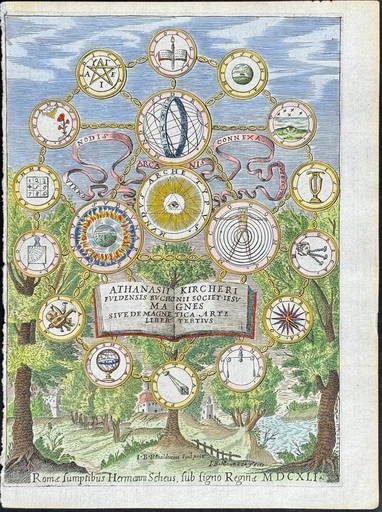 NODIS
CONNEXA
ARCA NIS
ARCHE
ATHANASII KIRCHERI
FVLDENSIS BVCHONII SOCIET IESV
MAGNES
SIVE DE MAGNETICA ARTE
LIBER TERTIVS
Romæ sumptibus Hermanni Scheus, sub signo Reginæ MDCXLI